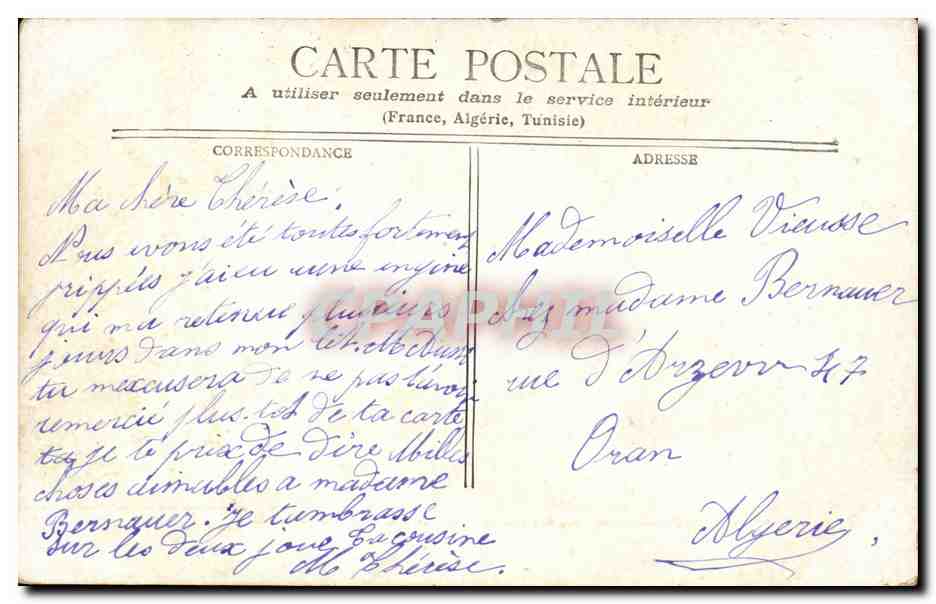 CARTE POSTALE
A utiliser seulement dans le service intérieur
(France, Algérie, Tunisie)
CORRESPONDANCE
Ma chère Thérèse,
Nous avons été toutes fortement
grippées j'ai eu une engine
qui m'a retenue plusieurs
jours dans mon lit.
tu mexcusera de ne pas t'avoir
remercié plus tot de ta carte
je te prix de dire Milles
choses aimables a madame
Bernauer. Je tambrasse
sur les deux joue Ta cousine
M Thérèse.
ADRESSE
Mademoiselle Vieusse
chez madame Bernauer
rue d'Arzew 47
Oran
Algerie